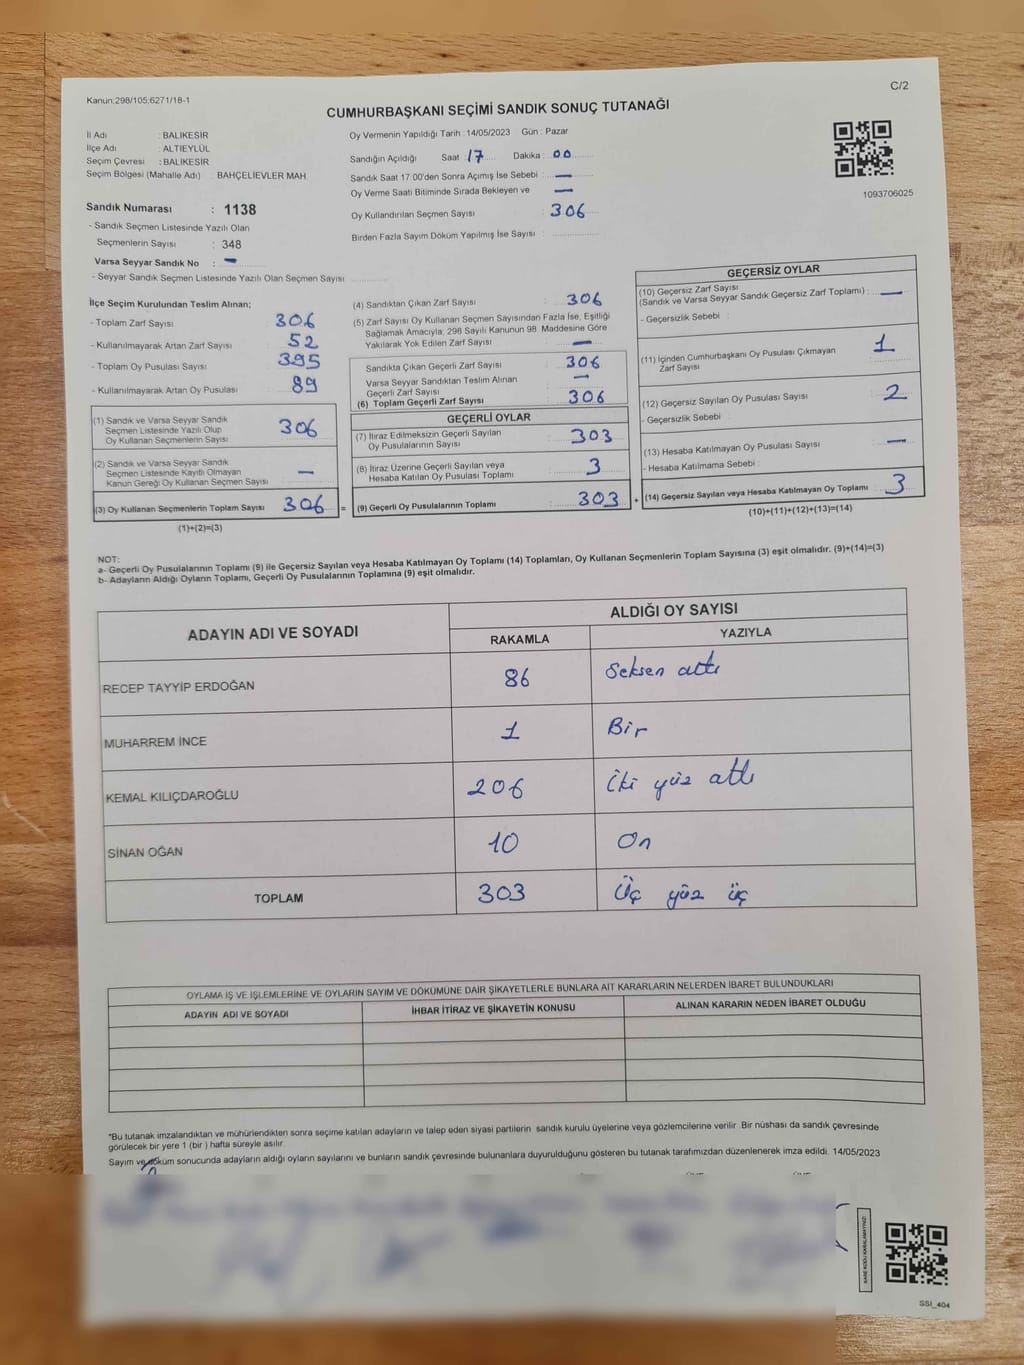 Kanun:298/105;6271/18-1
C/2
CUMHURBAŞKANI SEÇİMİ SANDIK SONUÇ TUTANAĞI
İl Adı : BALIKESİR
İlçe Adı : ALTIEYLÜL
Seçim Çevresi : BALIKESİR
Seçim Bölgesi (Mahalle Adı) : BAHÇELİEVLER MAH
Sandık Numarası : 1138
- Sandık Seçmen Listesinde Yazılı Olan
Seçmenlerin Sayısı : 348
Varsa Seyyar Sandık No : —
- Seyyar Sandık Seçmen Listesinde Yazılı Olan Seçmen Sayısı
Oy Vermenin Yapıldığı Tarih : 14/05/2023 Gün : Pazar
Sandığın Açıldığı Saat : 17 Dakika : 00
Sandık Saat 17:00'den Sonra Açımış İse Sebebi : —
Oy Verme Saati Bitiminde Sırada Bekleyen ve —
Oy Kullandırılan Seçmen Sayısı : 306
Birden Fazla Sayım Döküm Yapılmış İse Sayısı :
1093706025
İlçe Seçim Kurulundan Teslim Alınan;
- Toplam Zarf Sayısı 306
- Kullanılmayarak Artan Zarf Sayısı : 52
- Toplam Oy Pusulası Sayısı : 395
- Kullanılmayarak Artan Oy Pusulası : 89
(1) Sandık ve Varsa Seyyar Sandık
Seçmen Listesinde Yazılı Olup
Oy Kullanan Seçmenlerin Sayısı : 306
(2) Sandık ve Varsa Seyyar Sandık
Seçmen Listesinde Kayıtlı Olmayan
Kanun Gereği Oy Kullanan Seçmen Sayısı : —
(3) Oy Kullanan Seçmenlerin Toplam Sayısı : 306 =
(1)+(2)=(3)
(4) Sandıktan Çıkan Zarf Sayısı : 306
(5) Zarf Sayısı Oy Kullanan Seçmen Sayısından Fazla İse, Eşitliği
Sağlamak Amacıyla, 298 Sayılı Kanunun 98. Maddesine Göre
Yakılarak Yok Edilen Zarf Sayısı : —
Sandıkta Çıkan Geçerli Zarf Sayısı : 306
Varsa Seyyar Sandıktan Teslim Alınan
Geçerli Zarf Sayısı : —
(6) Toplam Geçerli Zarf Sayısı : 306
GEÇERLİ OYLAR
(7) İtiraz Edilmeksizin Geçerli Sayılan
Oy Pusulalarının Sayısı : 303
(8) İtiraz Üzerine Geçerli Sayılan veya
Hesaba Katılan Oy Pusulası Toplamı : 3
(9) Geçerli Oy Pusulalarının Toplamı : 303 +
GEÇERSİZ OYLAR
(10) Geçersiz Zarf Sayısı
(Sandık ve Varsa Seyyar Sandık Geçersiz Zarf Toplamı) : —
- Geçersizlik Sebebi :
(11) İçinden Cumhurbaşkanı Oy Pusulası Çıkmayan
Zarf Sayısı : 1
(12) Geçersiz Sayılan Oy Pusulası Sayısı : 2
- Geçersizlik Sebebi :
(13) Hesaba Katılmayan Oy Pusulası Sayısı : —
- Hesaba Katılmama Sebebi :
(14) Geçersiz Sayılan veya Hesaba Katılmayan Oy Toplamı : 3
(10)+(11)+(12)+(13)=(14)
NOT:
a- Geçerli Oy Pusulalarının Toplamı (9) ile Geçersiz Sayılan veya Hesaba Katılmayan Oy Toplamı (14) Toplamları, Oy Kullanan Seçmenlerin Toplam Sayısına (3) eşit olmalıdır. (9)+(14)=(3)
b- Adayların Aldığı Oyların Toplamı, Geçerli Oy Pusulalarının Toplamına (9) eşit olmalıdır.
ADAYIN ADI VE SOYADI ALDIĞI OY SAYISI
RAKAMLA YAZIYLA
RECEP TAYYİP ERDOĞAN 86 Seksen altı
MUHARREM İNCE 1 Bir
KEMAL KILIÇDAROĞLU 206 İki yüz altı
SİNAN OĞAN 10 On
TOPLAM 303 Üç yüz üç
OYLAMA İŞ VE İŞLEMLERİNE VE OYLARIN SAYIM VE DÖKÜMÜNE DAİR ŞİKAYETLERLE BUNLARA AİT KARARLARIN NELERDEN İBARET BULUNDUKLARI
ADAYIN ADI VE SOYADI İHBAR İTİRAZ VE ŞİKAYETİN KONUSU ALINAN KARARIN NEDEN İBARET OLDUĞU
*Bu tutanak imzalandıktan ve mühürlendikten sonra seçime katılan adayların ve talep eden siyasi partilerin sandık kurulu üyelerine veya gözlemcilerine verilir. Bir nüshası da sandık çevresinde
görülecek bir yere 1 (bir ) hafta süreyle asılır.
Sayım ve döküm sonucunda adayların aldığı oyların sayılarını ve bunların sandık çevresinde bulunanlara duyurulduğunu gösteren bu tutanak tarafımızdan düzenlenerek imza edildi. 14/05/2023
KARE KODU KARALAMAYINIZ!
SSI_404